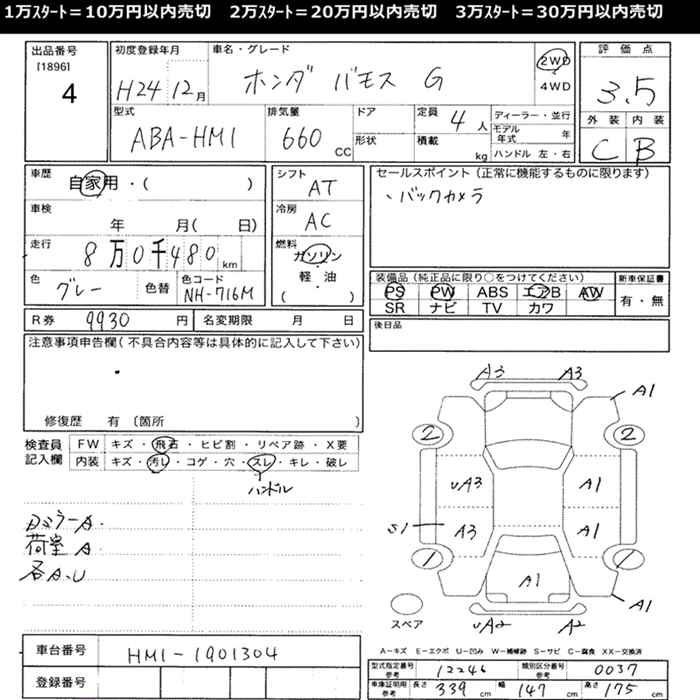 1万ｽﾀｰﾄ＝10万円以内売切　2万ｽﾀｰﾄ＝20万円以内売切　3万ｽﾀｰﾄ＝30万円以内売切
出品番号 [1896] 4
初度登録年月 H24 12月
車名・グレード ホンダ バモス G
2WD 4WD
評価点 3.5
型式 ABA-HM1
排気量 660 CC
ドア
形状
定員 4人
積載 kg
ディーラー・並行
モデル年式 年
ハンドル 左・右
外装 内装
C B
車歴 自家用・( )
シフト AT
セールスポイント(正常に機能するものに限ります)
、バックカメラ
車検 年 月( 日)
冷房 AC
走行 8万0千480km
燃料 ガソリン・軽・油 ( )
色 グレー 色替 色コード NH-716M
装備品(純正品に限り○をつけてください) 新車保証書
PS PW ABS エアB AW 有・無
SR ナビ TV カワ
R券 9930円 名変期限 月 日
後日品
注意事項申告欄(不具合内容等は具体的に記入して下さい)
修復歴 有 (箇所 )
検査員記入欄
FW キズ・飛石・ヒビ割・リペア跡・X要
内装 キズ・汚レ・コゲ・穴・スレ・キレ・破レ
ハンドル
荷室 A
各A.U
A3 A3
A1
2 2
UA3 A1
S1 A3 A1
1 1
A1
スペア
UA2 A2
A1
A-キズ E-エクボ U-凹み W-補修跡 S-サビ C-腐食 XX-交換済
車台番号 HM1-1901304
登録番号
型式指定番号 参考 12246 類別区分番号 参考 0037
車庫証明用 参考 長さ 339 cm 幅 147 cm 高さ 175 cm